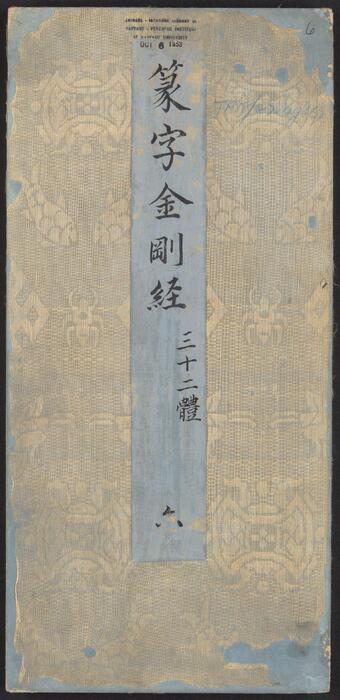 CHINESE - JAPANESE LIBRARY OF
HARVARD - YENCHING INSTITUTE
AT HARVARD UNIVERSITY
OCT 6 1953
6
篆字金剛経
三十二體
六